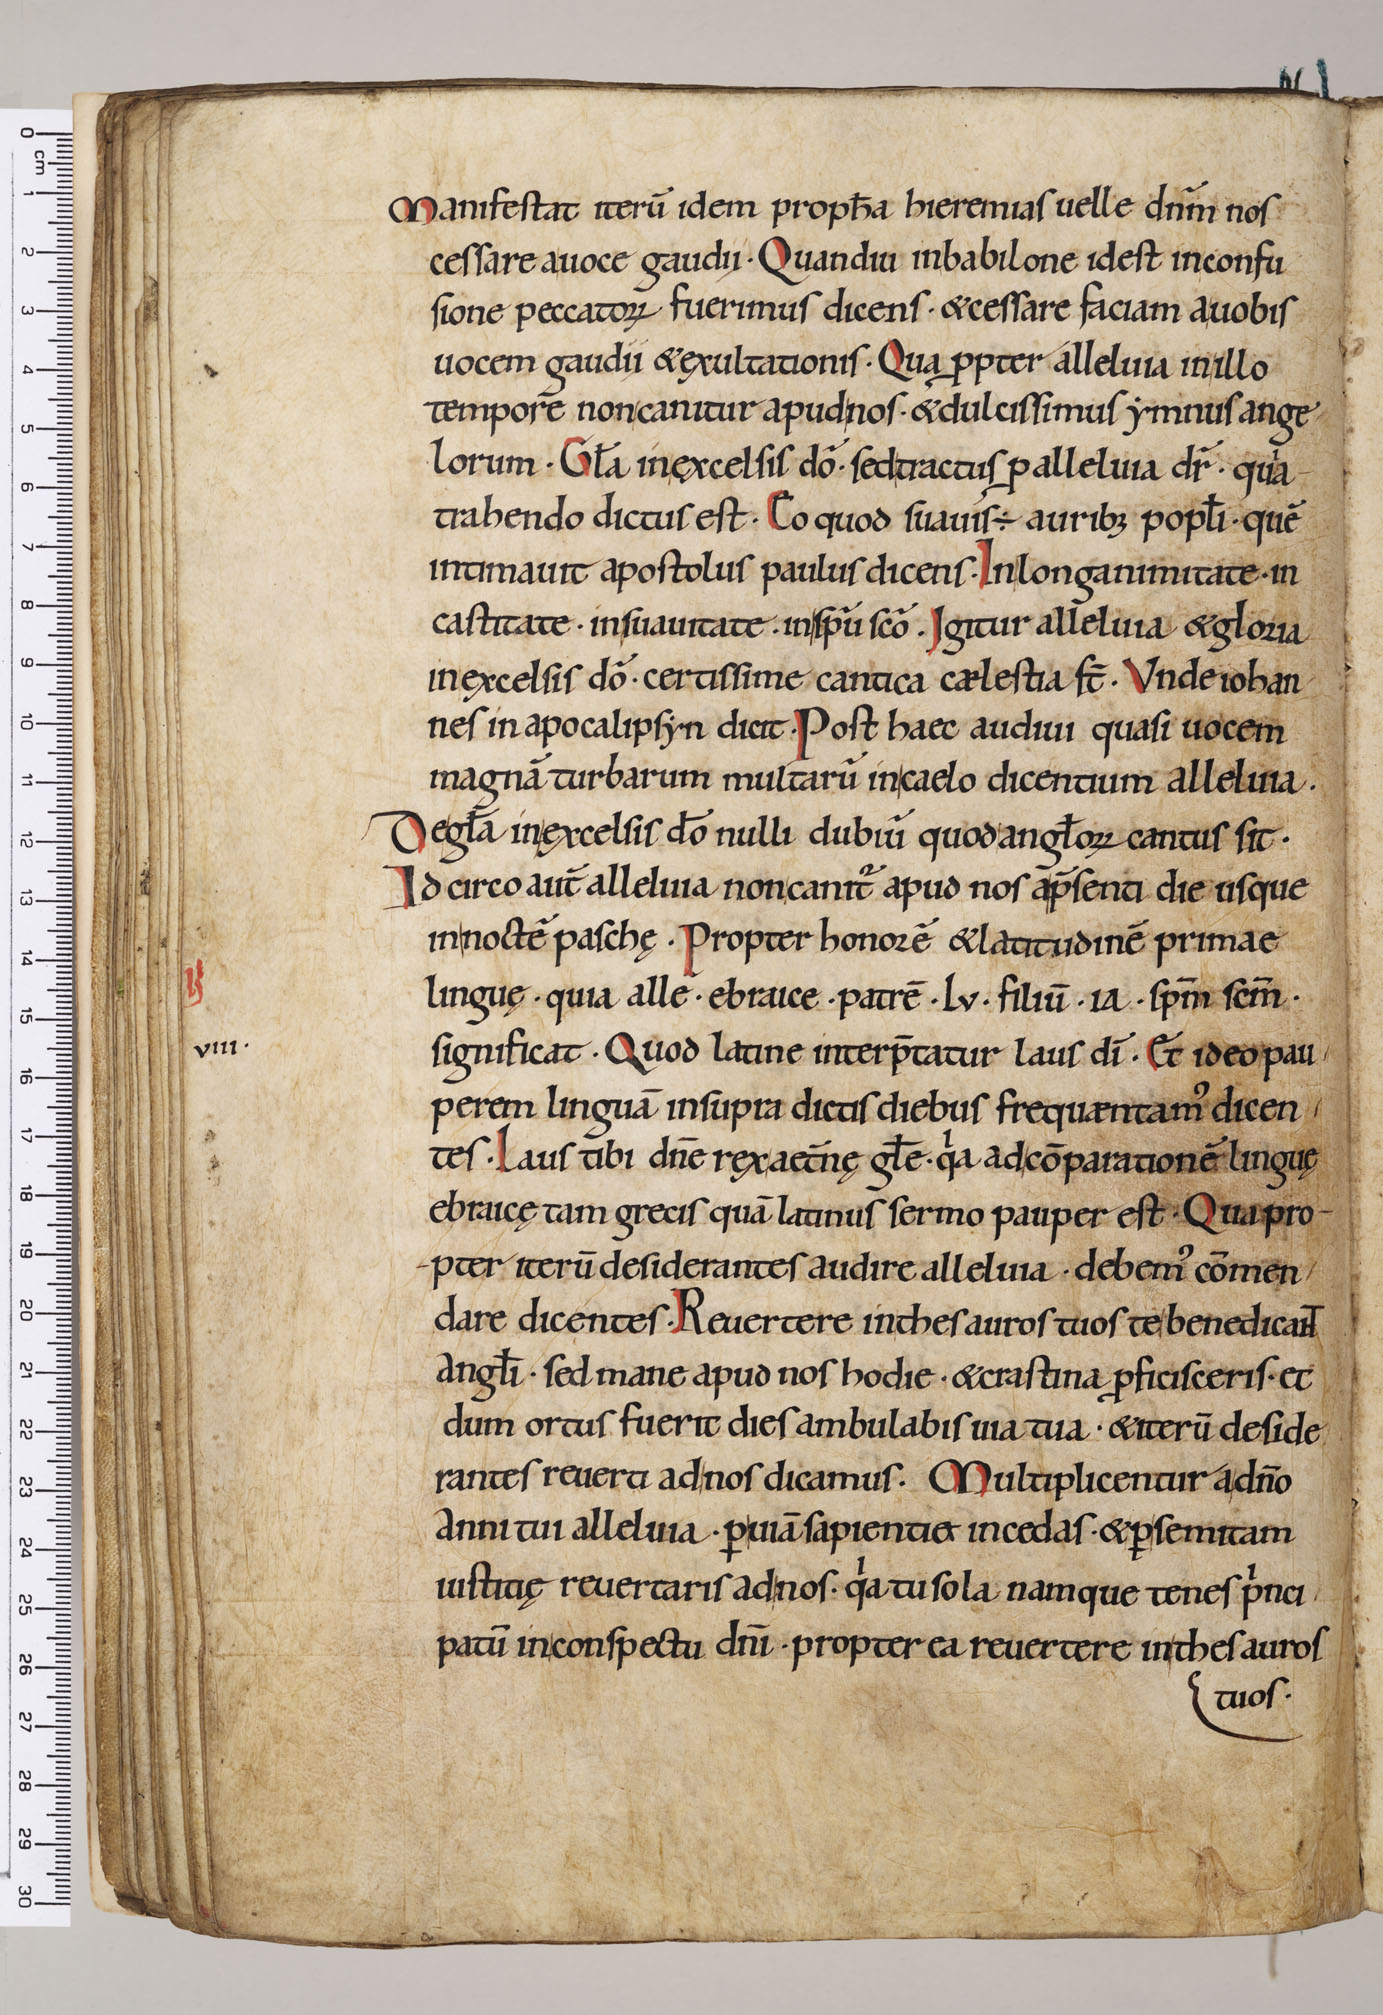 Manifestat iterū idem proph̄a hieremias uelle dn̄m nos
cessare auoce gaudii · Quandiu inbabilone idest inconfu
sione peccatoꝝ fuerimus dicens · &cessare faciam auobis
uocem gaudii &ęxultationis · Qua ꝓpter alleluia inillo
temporē noncanitur apudnos · &dulcissimus ẏmnus ange
lorum · Gl̄a inęxcelsis dō · sedtractus ꝓ alleluia dr̄ · quia
trahendo dictus est · Eo quod suauis ÷ auribꝫ popl̄i · quē
intimauit apostolus paulus dicens · Inlonganimitate · in
castitate · insuauitate · insp̄u scō · Igitur alleluia &gloria
inęxcelsis dō · certissime cantica cælestia st̄ · Vnde iohan
nes in apocalipsẏn dicit · Post haec audiui quasi uocem
magnā turbarum multarū incaelo dicentium alleluia ·
De gl̄a inęxcelsis dō nulli dubiū quod angl̄oꝝ cantus sit ·
Id circo aut̄ alleluia noncanit᷑ apud nos ap̄senti die usque
innoctē paschę · Propter honorē &latitudinē primae
linguę · quia alle · ebraice · patrē · lv · filiū · ia · sp̄m scm̄ ·
viii ·
significat · Quod latine interp̄tatur laus dī · Et ideo pau
perem linguā insupra dictis diebus frequæntamꝰ dicen
tes · Laus tibi dn̄e rex aet̄nę gl̄e · qͥa adcōparationē linguę
ebraicę tam grecis quā latinus sermo pauper est · Qua pro-
-pter iterū desiderantes audire alleluia · debemꝰ cōmen
dare dicentes · Reuertere inthesauros tuos te benedicant
angl̄i · sed mane apud nos hodie · &crastina ꝓficisceris · et
dum ortus fuerit dies ambulabis uia tua · &iterū deside
rantes reuerti adnos dicamus · Multiplicentur adn̄o
anni tui alleluia · ꝑuiā sapientiæ incedas · &ꝑsemitam
iustitię reuertaris adnos · qͥa tu sola namque tenes pͥnci
patū inconspectu dn̄i · propter ea reuertere inthesauros
tuos ·
0 cm 1 2 3 4 5 6 7 8 9 10 11 12 13 14 15 16 17 18 19 20 21 22 23 24 25 26 27 28 29 30